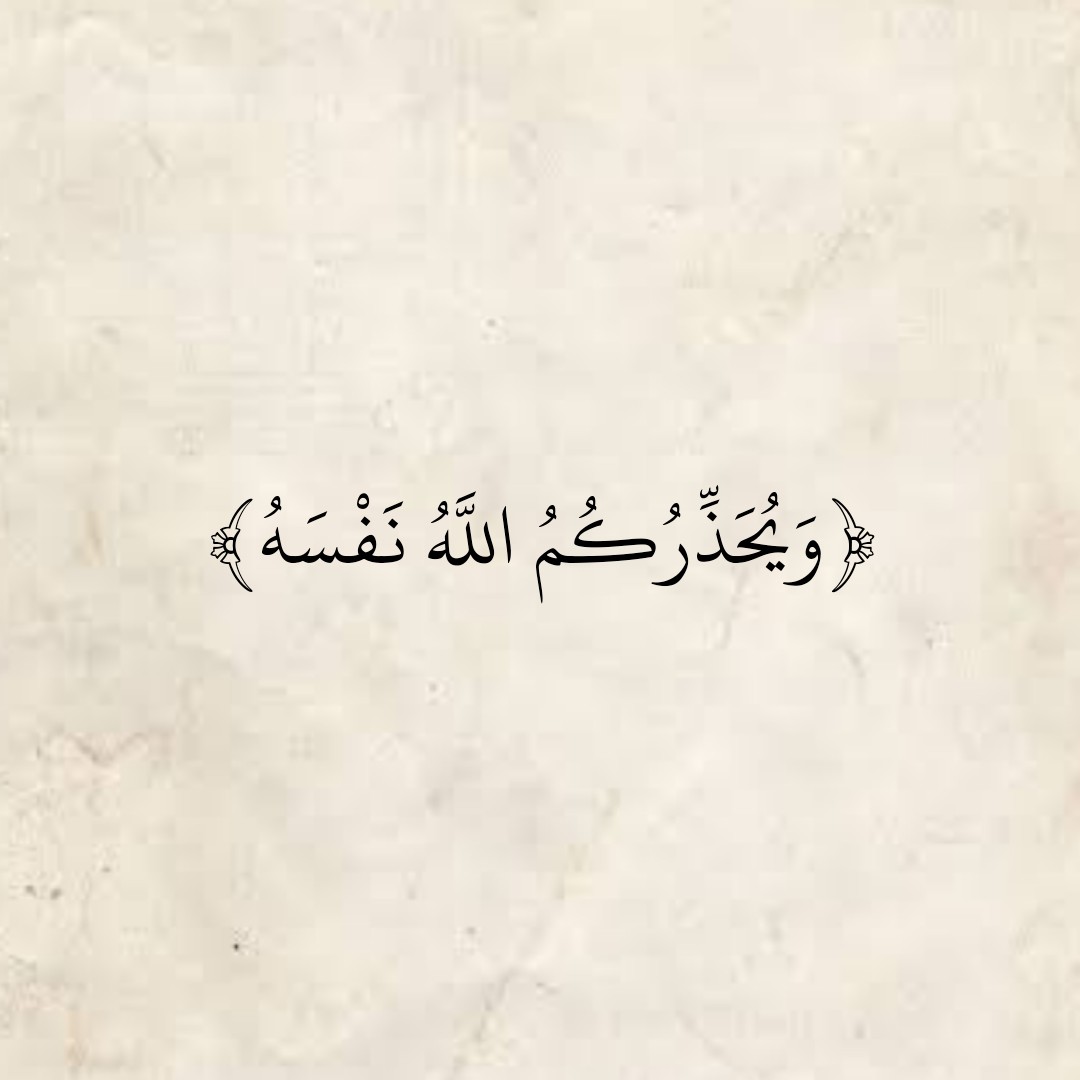 ﴿وَيُحَذِّرُكُمُ اللَّهُ نَفْسَهُ﴾